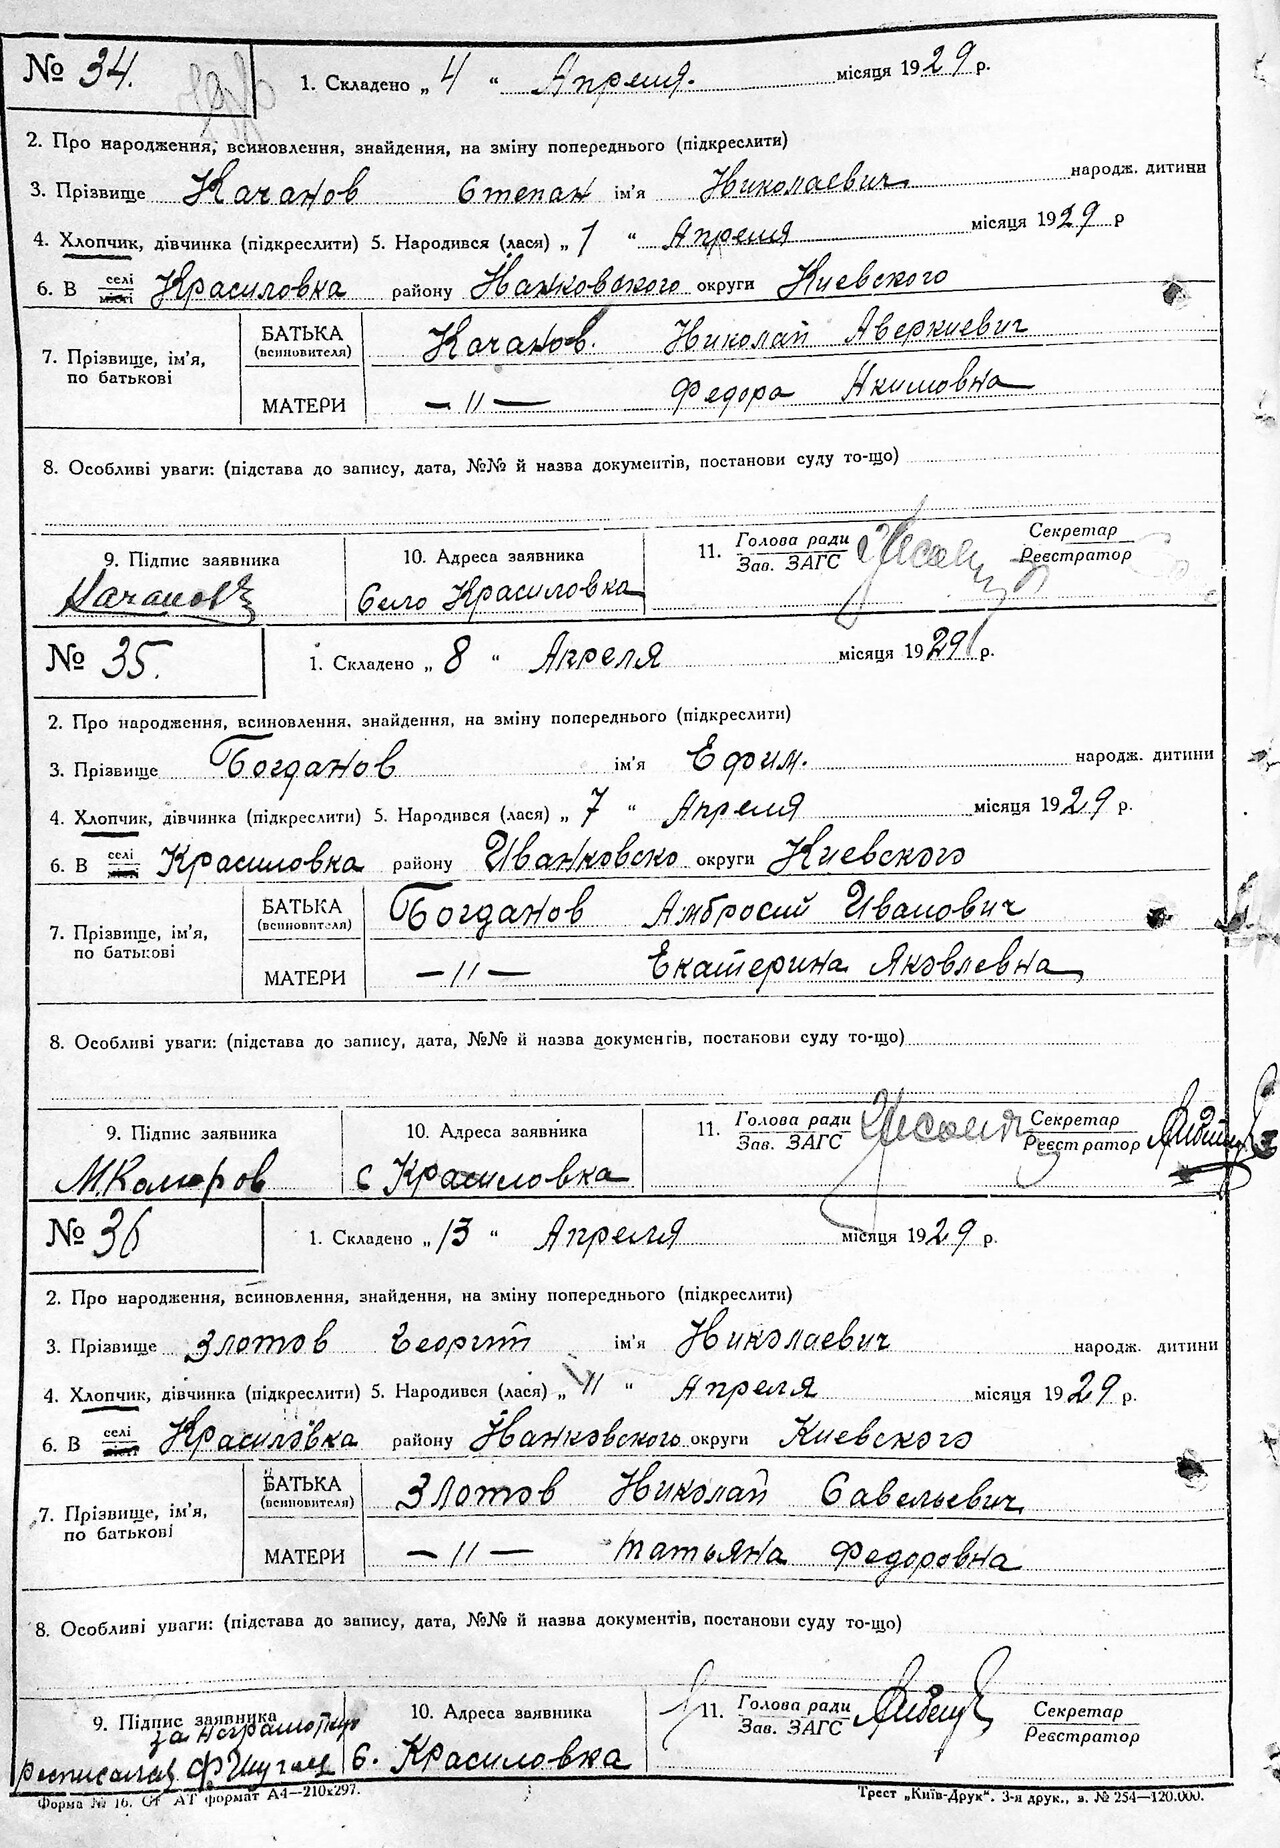 № 34. 1. Складено „ 4 “ Апреля. місяця 1929 р.
2. Про народження, всиновлення, знайдення, на зміну попереднього (підкреслити)
3. Прізвище Качанов Степан ім'я Николаевич народж. дитини
4. Хлопчик, дівчинка (підкреслити) 5. Народився (лася) „ 1 “ Апреля місяця 1929 р
6. В селі місті Красиловка району Иванковского округи Киевского
7. Прізвище, ім'я, по батькові
БАТЬКА (всиновителя) Качанов. Николай Аверкиевич
МАТЕРИ —〃— Федора Акимовна
8. Особливі уваги: (підстава до запису, дата, №№ й назва документів, постанови суду то-що)
9. Підпис заявника 10. Адреса заявника 11. Голова ради Зав. ЗАГС Секретар Реєстратор
Качановъ Село Красиловка
№ 35. 1. Складено „ 8 “ Апреля місяця 1929 р.
2. Про народження, всиновлення, знайдення, на зміну попереднього (підкреслити)
3. Прізвище Богданов ім'я Ефим. народж. дитини
4. Хлопчик, дівчинка (підкреслити) 5. Народився (лася) „ 7 “ Апреля місяця 1929 р.
6. В селі місті Красиловка району Иванковско округи Киевского
7. Прізвище, ім'я, по батькові
БАТЬКА (всиновителя) Богданов Амбросий Иванович
МАТЕРИ —〃— Екатерина Яковлевна
8. Особливі уваги: (підстава до запису, дата, №№ й назва документів, постанови суду то-що)
9. Підпис заявника 10. Адреса заявника 11. Голова ради Зав. ЗАГС Секретар Реєстратор
с Красиловка
№ 36 1. Складено „ 13 “ Апреля місяця 1929 р.
2. Про народження, всиновлення, знайдення, на зміну попереднього (підкреслити)
3. Прізвище Злотов Георгий ім'я Николаевич народж. дитини
4. Хлопчик, дівчинка (підкреслити) 5. Народився (лася) „ 11 “ Апреля місяця 1929 р.
6. В селі місті Красиловка району Иванковского округи Киевского
7. Прізвище, ім'я, по батькові
БАТЬКА (всиновителя) Злотов Николай Савельевич
МАТЕРИ —〃— Татьяна Федоровна
8. Особливі уваги: (підстава до запису, дата, №№ й назва документів, постанови суду то-що)
9. Підпис заявника 10. Адреса заявника 11. Голова ради Зав. ЗАГС Секретар Реєстратор
С. Красиловка
Форма № 16. ОТ АТ формат А4—210х297. Трест „Київ-Друк“. 3-я друк., з. № 254—120.000.